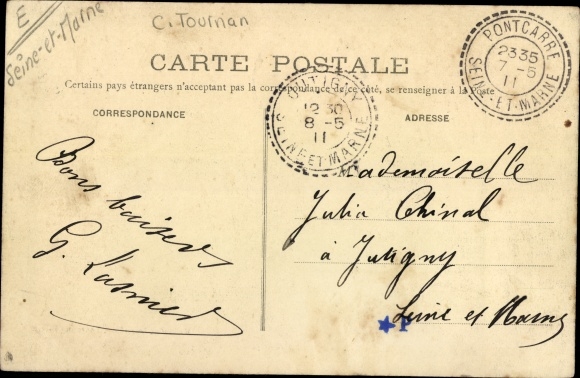 E
Seine-et-Marne
C. Tournan
CARTE POSTALE
Certains pays étrangers n'acceptant pas la correspondance de ce côté, se renseigner à la Poste
CORRESPONDANCE
ADRESSE
PONTCARRE
2335
7 -5
11
SEINE-ET-MARNE
JUTIGNY
12 30
8 -5
11
SEINE-ET-MARNE
Bons baisers
G. Lasnier
Mademoiselle
Julia Chinal
à Jutigny
Seine et Marne
P